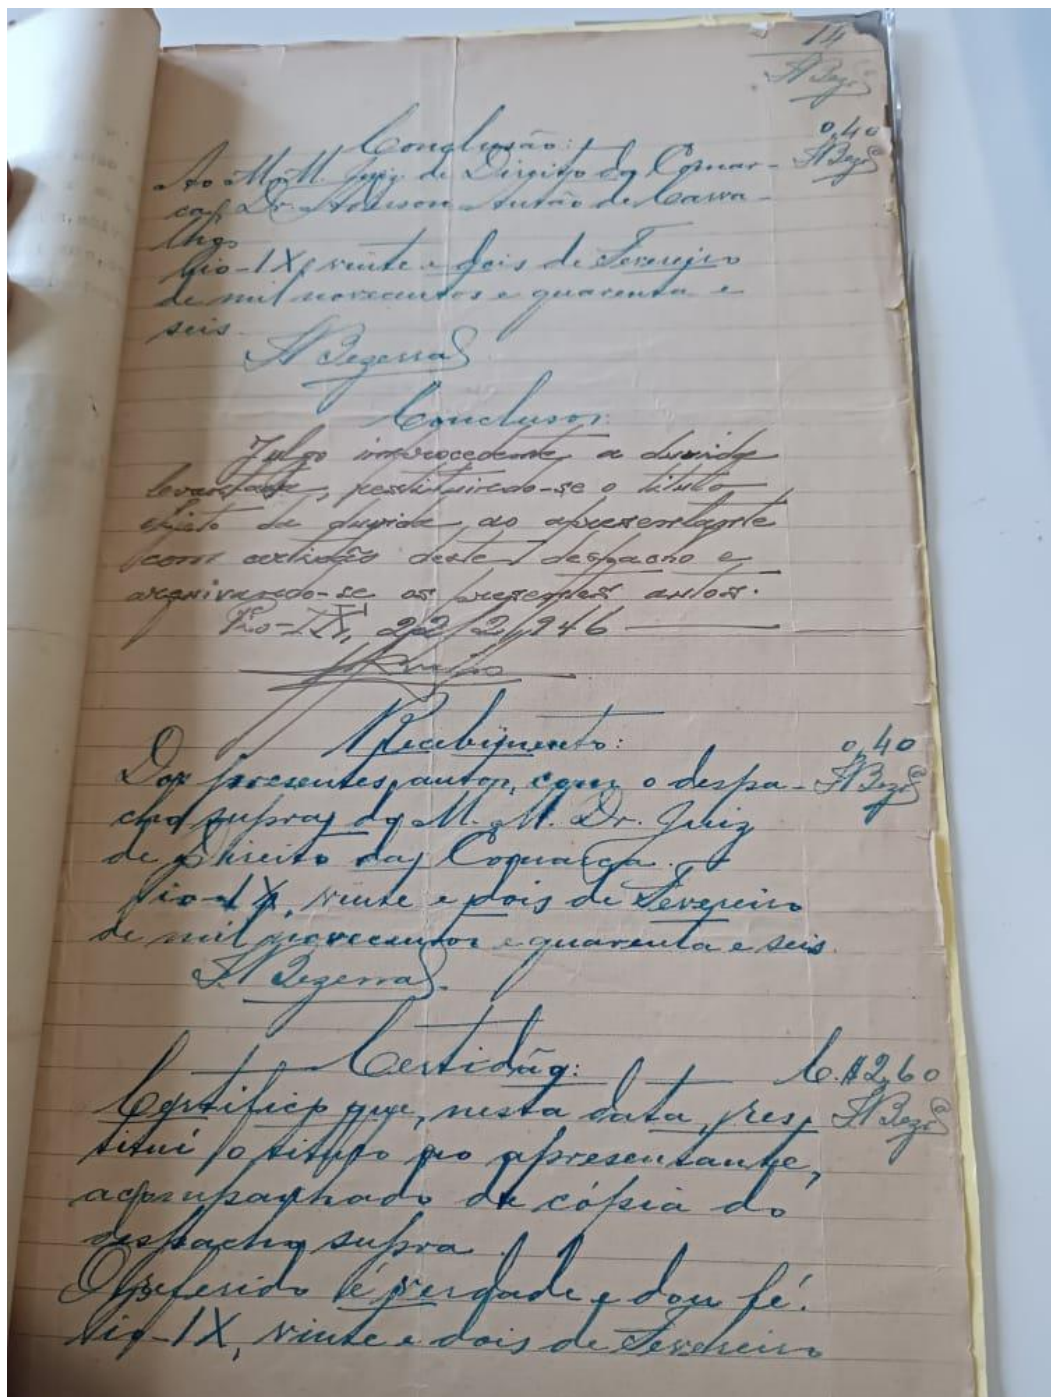 14
Conclusão:
0,40
Ao M. M. Juiz de Direito da Comar-
ca, Dr. Antão de Carva-
lho
Pio-IX, vinte e dois de Fevereiro
de mil novecentos e quarenta e
seis.
Bezerra
Conclusos:
Julgo improcedente a duvida
levantada, restituindo-se o titulo
objeto da duvida, ao apresentante
com certidão deste despacho e
arquivando-se os presentes autos.
Pio-IX, 22/2/946
Recebimento:
0,40
Dos presentes autos, com o despa-
cho supra do M. M. Dr. Juiz
de Direito da Comarca.
Pio-IX, vinte e dois de Fevereiro
de mil novecentos e quarenta e seis.
Bezerra
Certidão:
C.$2,60
Certifico que, nesta data, res-
tituí o titulo ao apresentante,
acompanhado de cópia do
despacho supra.
O referido é verdade e dou fé.
Pio-IX, vinte e dois de Fevereiro